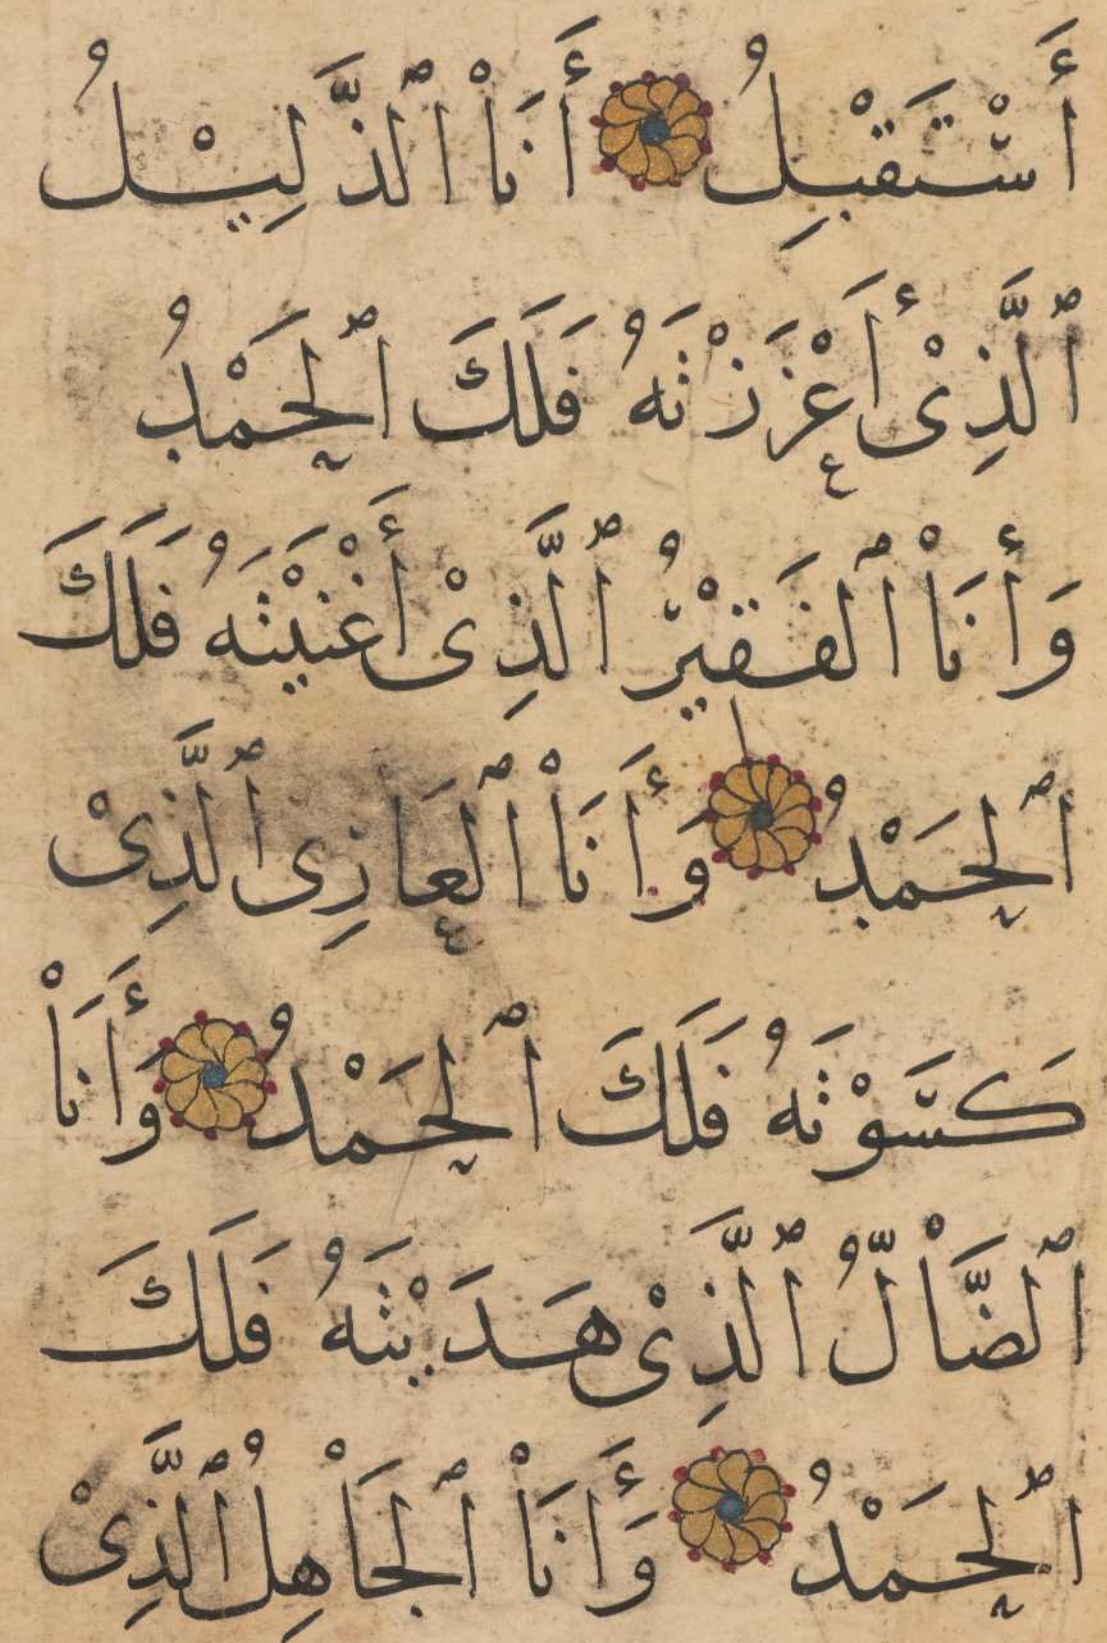 أَسْتَقْبِلُ أَنَاْ ٱلذَّلِيْلُ
ٱلَّذِىْ أَعْزَزْتَهُ فَلَكَ ٱلْحَمْدُ
وَأَنَاْ ٱلفَقِيْرُ ٱلَّذِىْ أَغْنَيْتَهُ فَلَكَ
ٱلحَمْدُ وَأَنَاْ ٱلعَارِى ٱلَّذِىْ
كَسَوْتَهُ فَلَكَ ٱلحَمْدُ وَأَنَاْ
ٱلضَّاْلُّ ٱلَّذِىْ هَدَيْتَهُ فَلَكَ
ٱلحَمْدُ وَأَنَاْ ٱلجَاْهِلُ ٱلَّذِىْ